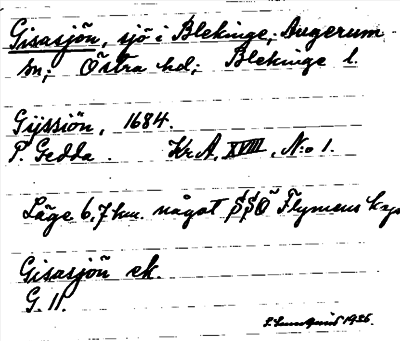 Gisasjön, sjö i Blekinge; Augerum
sn; Östra hd; Blekinge l.
Gijssiön, 1684.
P. Gedda. Kr.A, XVIII, N:o 1.
Läge 6,7 km. något SSÖ Flymens k
Gisasjön ek.
G. 11.
1936.